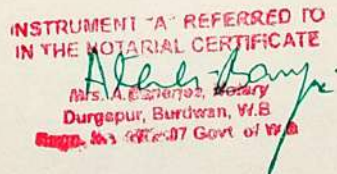 INSTRUMENT "A" REFERRED TO
IN THE NOTARIAL CERTIFICATE
Mrs. A. Banerjee, Notary
Durgapur, Burdwan, W.B
07 Govt of W.B